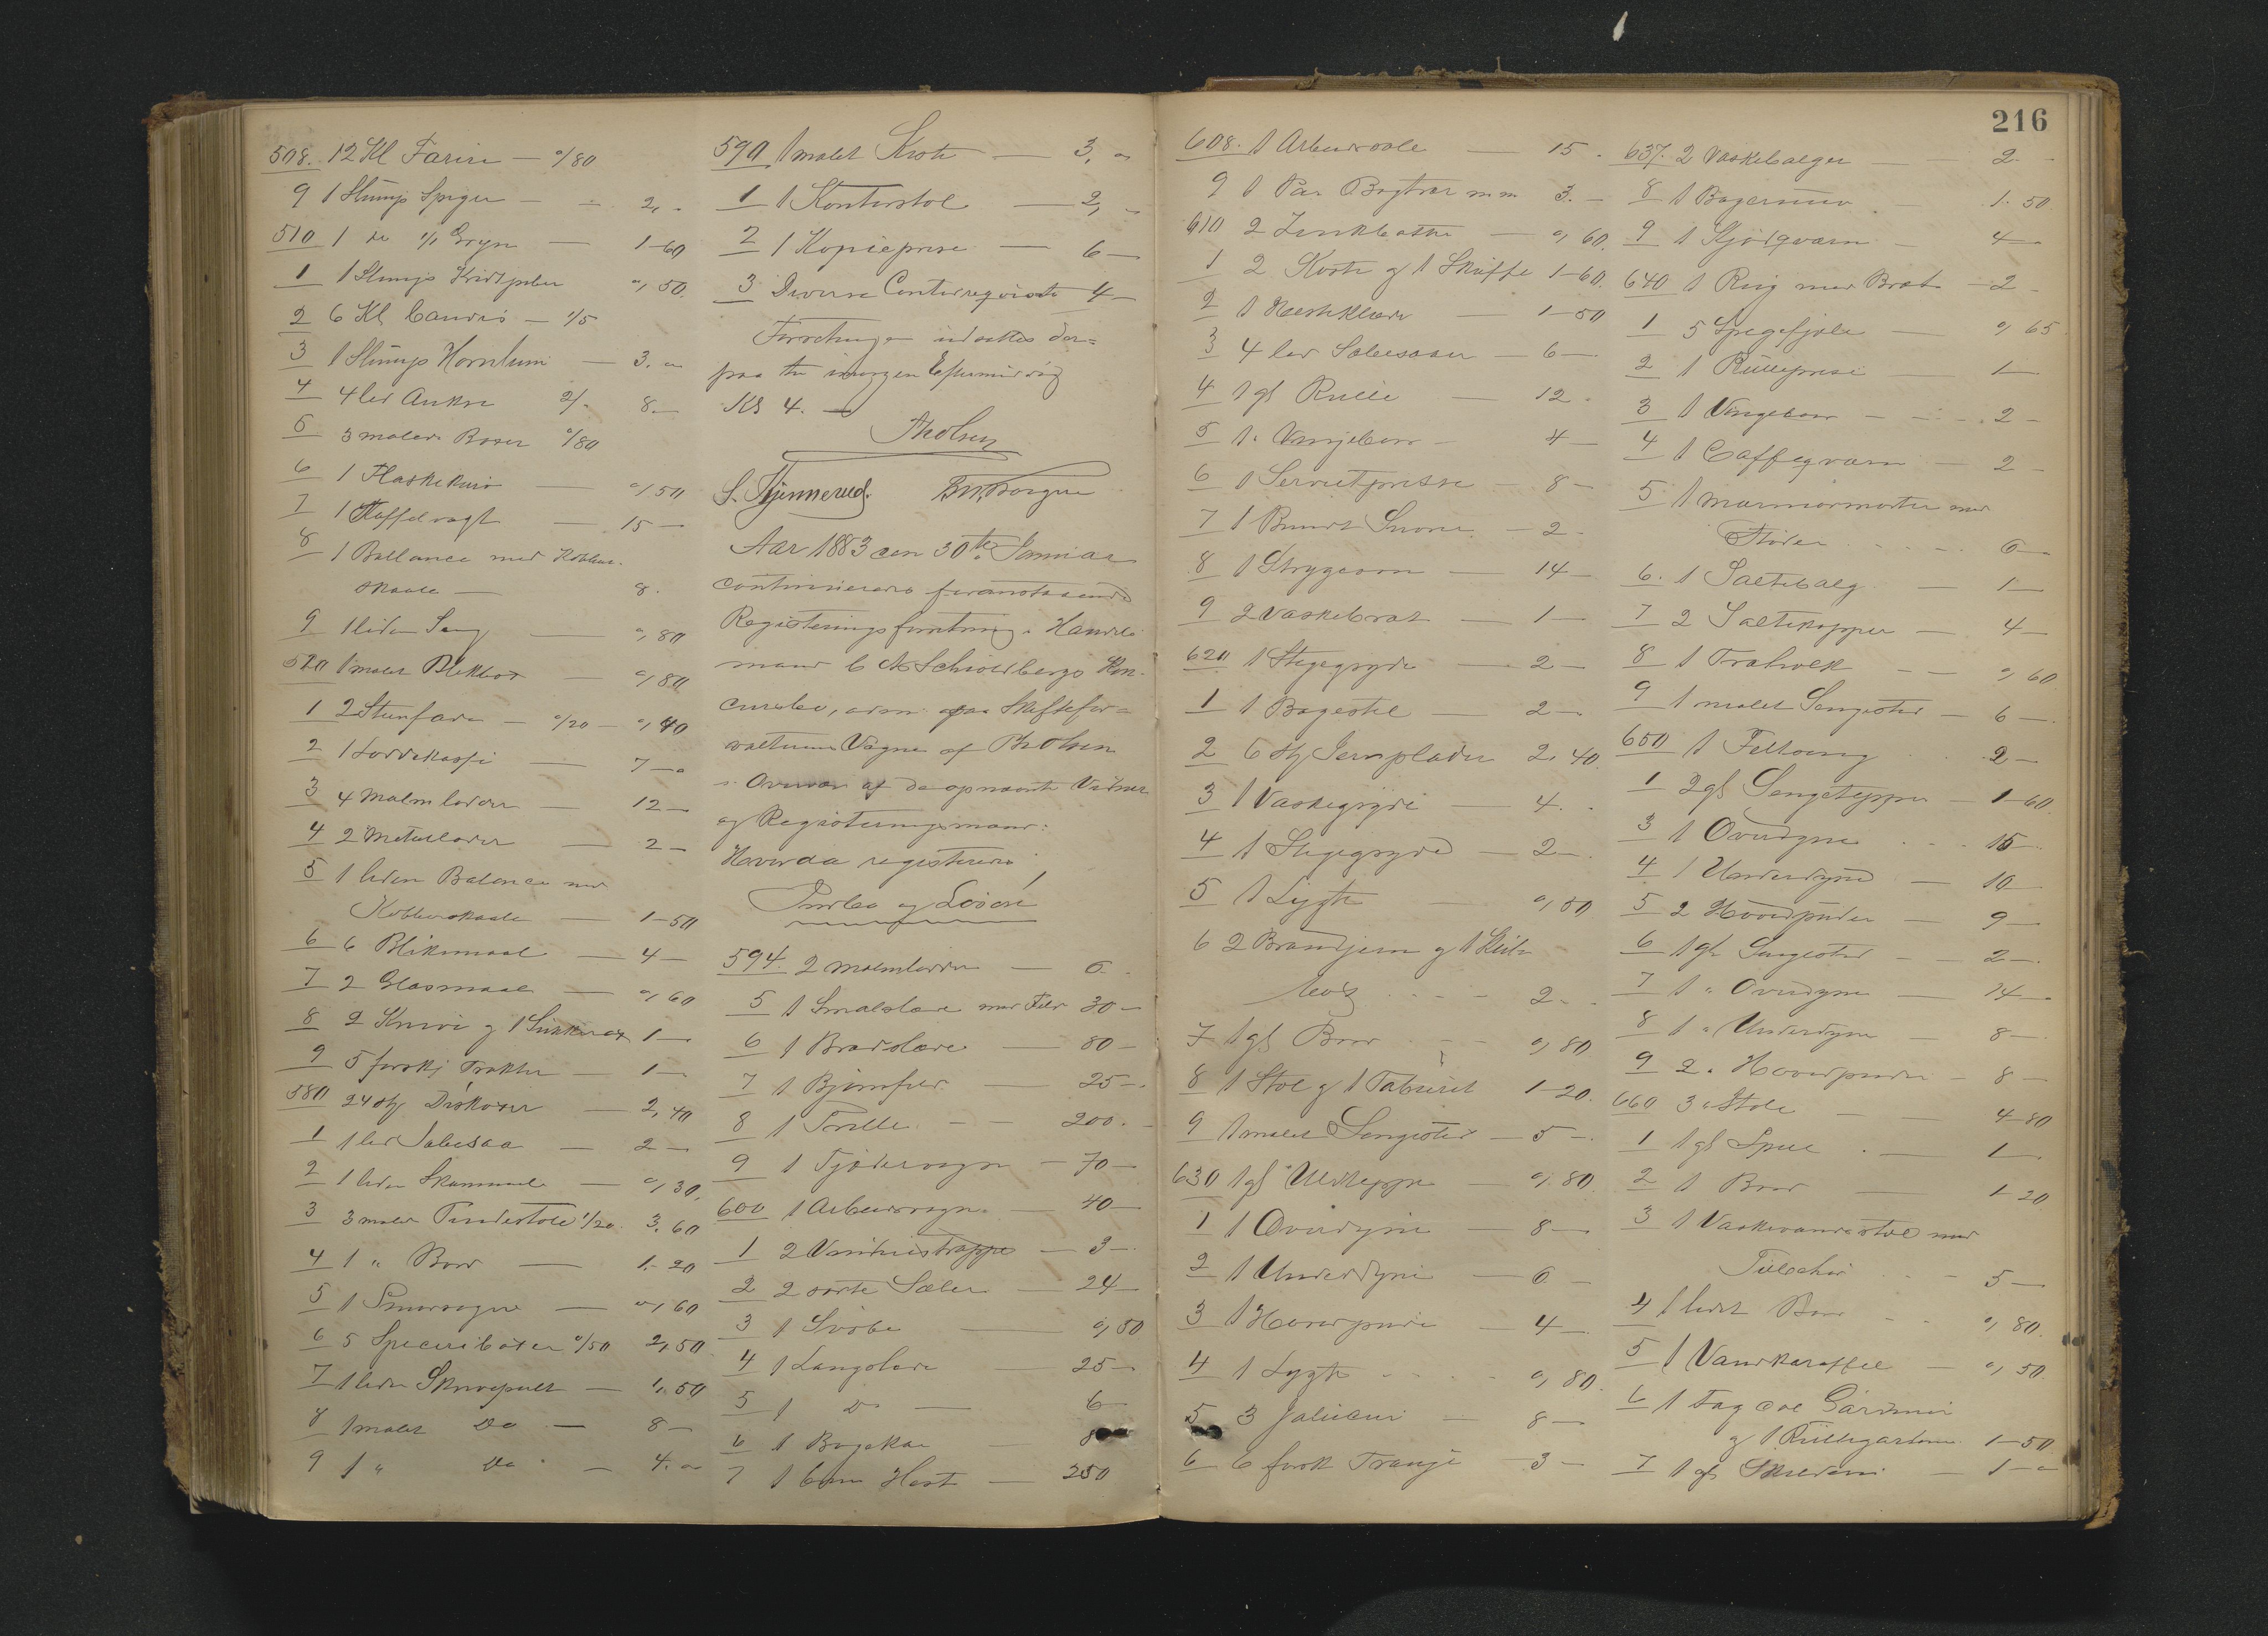 508. 12 Kl Farin — "/80
9 1 Slump Spiger — 2, -
510 1 do 1/1 Gryn — 1-60
1 1 Slump Kridtpiber "/50.
2 6 Kl Candis — 1/5
3 1 Slump Hornlim — 3. "
4 4 led Ankre 2/- 8 —
5 3 malede Baser "/80
6 1 Flaskekurv — "/50
7 1 Taffelvægt — 15 —
8 1 Ballance med Kobber-
skaale — 8.
9 1 liden Seng — "/80
520 1 malet Blikbox — "/80
1 2 — "/20 — "/40
2 1 Loddekasse — 7 — "
3 4 Malmlodder — 12 —
4 2 Metallodder — 2 —
5 1 liden Balance med
Kobberskaale — 1-50
6 6 Blikmaal — 4 —
7 2 Glasmaal — "/60
8 2 Knive og 1 Sukkerax 1 —
9 5 forskj Trakter — 1 —
580 24 stk Diskoxer — 2,40
1 1 led Saltesaa — 2 —
2 1 liden Skammel — "/30.
3 3 malede Pindestole 1/20. 3. 60
4 1 " Bord — 1.-20
5 1 — "/60
6 5 Speceribøxer "/50 2,50
7 1 liden Skrivepult — 1,50
8 1 malet Do — 8 —
9 1 " Do — 4. "
590 1 malet Skab — 3, "
1 1 Kontorstol — 2, -
2 1 Kopiepresse — 6 —
3 Diverse Contorreqvisiter 4 —
Forretningen udsattes der=
paa til imorgen Eftermiddag
Kl 4. —
Th Olsen
S. Tjennerud. Borgen
Aar 1883 den 30te Januar
continueredes foranstaaende
Registreringsforretning i Handels
mand C A Schioldbergs Kon-
cursbo, adm. paa Skiftefor-
valterens Vegne af Th Olsen
i Overvær af de opnævnte Vidner
og Registreringsmænd:
Hvorda registreredes
Indbo og Løsøre
594. 2 malmlodder — 6 -
5 1 Smalslæde med Feld 30 —
6 1 Bredslæde — 80 —
7 1 Bjørnfeld — 25 —
8 1 Trille — 200. -
9 1 Fjædervogn — 70 —
600 1 Arbeidsvogn — 40 —
1 2 Vinduestrapper — 3 —
2 2 sorte Sæler — 24 —
3 1 Svøbe — "/50
4 1 Langslæde 25 —
5 1 Do — 6 —
6 1 Bagekar 8
7 1 brun Hest — 250
608. 1 Arbeidssæle — 15 .
9 1 Par Bogtræer m.m. 3. —
610 2 Zinkbøtter — "/60.
1 2 Koste og 1 Skuffe 1-60.
2 1 Hesteklæde — 1-50
3 4 led Saltesaaer — 6 —
4 1 gl Rulle — 12 -
5 1 " Vringlebord — 4 —
6 1 Servietpresse — 8 —
7 1 Bundt Snorer — 2 -
8 1 Strygeovn — 14 —
9 2 Vaskebræt — 1 —
620 1 Stegegryde — 2 —
1 1 Bagestel — 2 —
2 6 stk Jernplader 2. 40.
3 1 Vaskegryde — 4. -
4 1 Stegegryde — 2 —
5 1 Lygte — "/50
6 2 Brandjern og 1
2 -
7 1 gl Bord - - "/80
8 1 Stol og 1 Taburet 1-20.
9 1 malet Sengested — 5 —
630 1 gl Uldteppe — "/80
1 1 Overdyne — 8 —
2 1 Underdyne — 6 —
3 1 Hovedpude — 4 —
4 1 Lygte - - - "/80.
5 3 Jalusier — 8 —
6 6 forsk 3 —
216
637. 2 Vaskebalger — 2. —
8 1 Bagerrive — 1. 50
9 1 Kjødqværn — 4 —
640 1 Rug med Bræt — 2 -
1 5 Spegefjæle — "/65
2 1 Rullepresse — 1 —
3 1 Vringebord — 2 —
4 1 Caffeqværn — 2 —
5 1 marmormorter med
Støder - - - 6 —
6. 1 Saltebalg — 1 —
7 2 Saltekopper — 4 —
8 1 — "/60.
9 1 malet Sengested — 6 —
650 1 Feltseng 2 —
1 2 gl Sengetepper — 1-60.
3 1 Overdyne - - 15 —
4 1 Underdyne — 10 —
5 2 Hovedpuder — 9 —
6 1 gl Sengested — 2 —
7 1 " Overdyne — 14 —
8 1 " Underdyne — 8 —
9 2 " Hovedpuder — 8 —
660 3 " Stole — 4-80
1 1 gl Speil — 1 —
2 1 Bord — 1-20
3 1 Vaskevandsstol med
Tilbehør - - 5 —
4 1 lidet Bord - - "/80.
5 1 Vandkaraffel — "/50
6 1 Fag Gardiner
og 1 Rullegardin 1-50
7 1 gl Skilderi — 1 — "